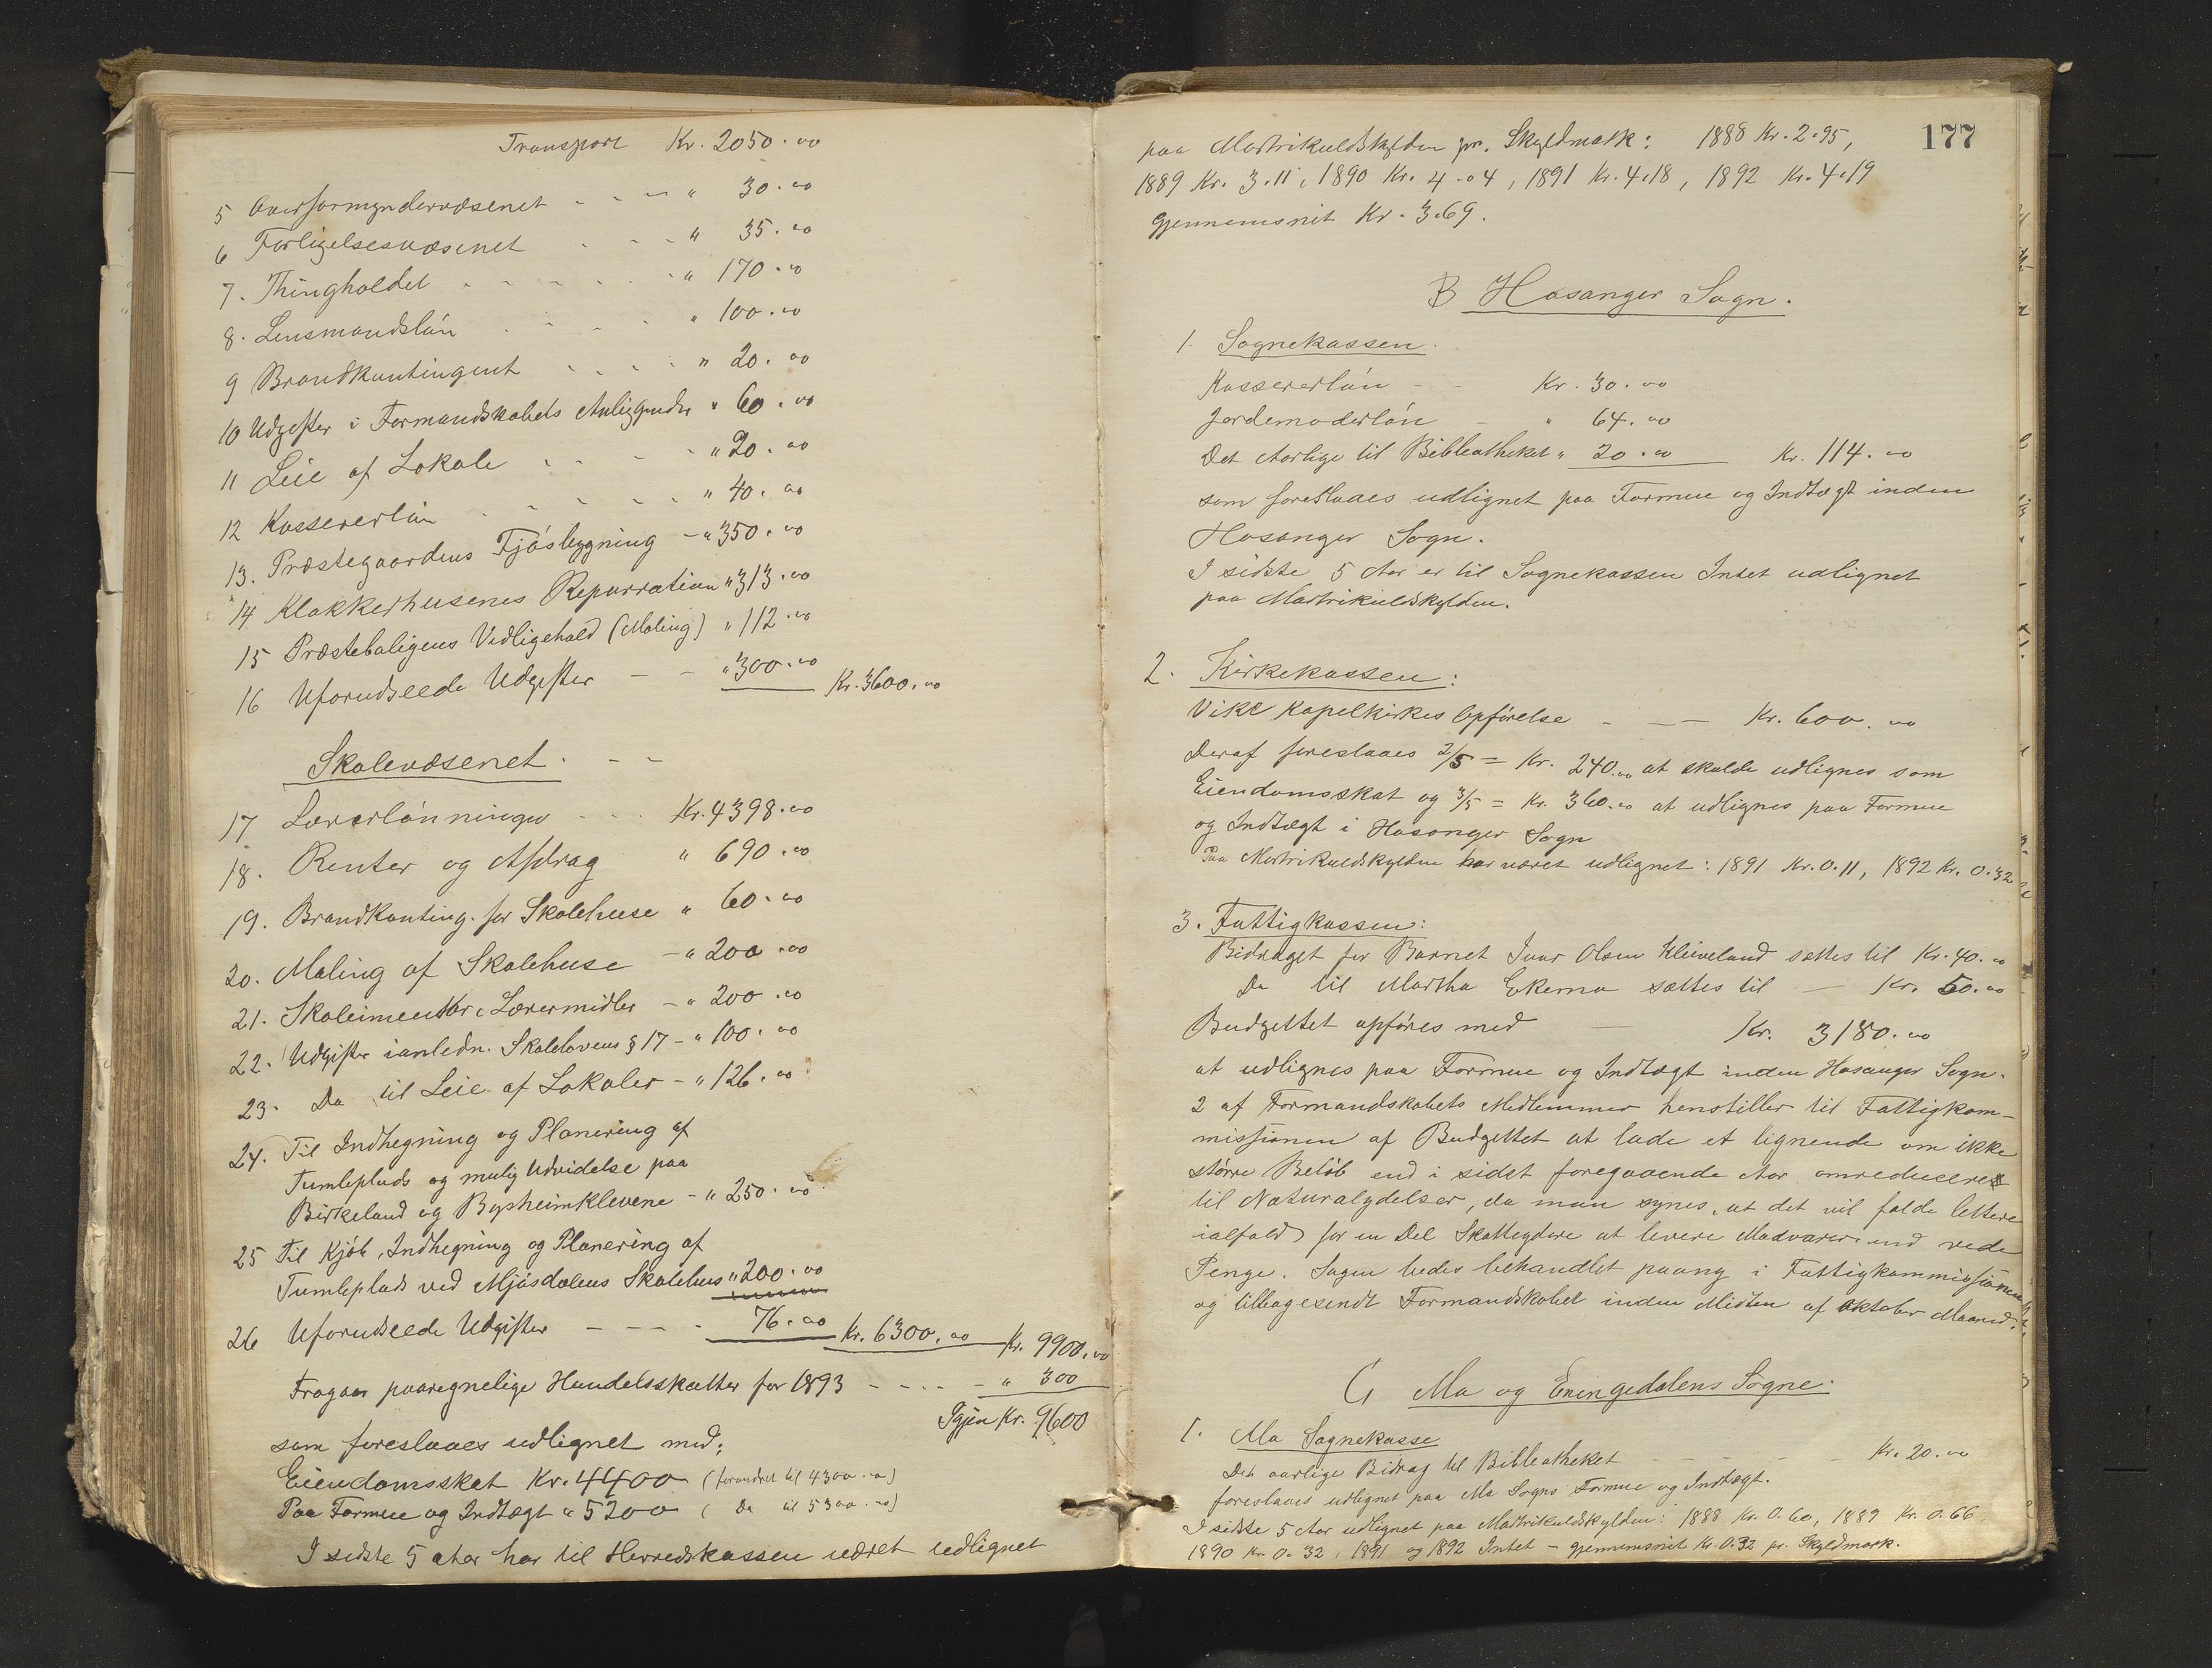 Transport Kr. 2050.00
5 Overformyndervæsenet - - - " 30.00
6 Forligelsesvæsenet - - - " 35.00
7. Thingholdet - - - - - " 170.00
8. Lensmandsløn - - - - " 100.00
9 Brandkontingent - - - - " 20.00
10 Udgifter i Formandskabets Anliggender " 60.00
11 Leie af Lokale - - - - " 20.00
12 Kassererløn - - - - " 40.00
13. Præstegaardens Fjøsbygning - " 350.00
14 Klokkerhusenes Reparration " 313.00
15 Præsteboligens Vedligehold (Maling) " 112.00
16 Uforudseede Udgifter - - " 300.00 Kr. 3600.00
Skolevæsenet. - -
17 Lærerlønninger - - - Kr. 4398.00
18. Renter og Afdrag " 690.00
19. Brandkonting. for Skolehuse " 60.00
20. Maling af Skolehuse - " 200.00
21. Skoleinventar, Lærermidler - " 200.00
22. Udgifter ianledn. Skolelovens § 17 - " 100.00
23. Do til Leie af Lokaler - " 126.00
24. Til Indhegning og Planering af
Tumleplads og mulig Udvidelse paa
Birkeland og Bysheimklevene - " 250.00
25 Til Kjøb, Indhegning og Planering af
Tumleplads ved Mjøsdalens Skolehus " 200.00
26 Uforudseede Udgifter - - - - 76.00 Kr. 6300.00 Kr. 9900.00
Fragaar paaregnelige Handelsskatter for 1893 - - - - - " 300
Igjen Kr. 9600
som foreslaaes udlignet med:
Eiendomsskat Kr. 4400 (forandret til 4300.00)
Paa Formue og Indtægt " 5200 ( Do til 5300.00)
I sidste 5 Aar har til Herredskassen været udlignet
177
paa Martrikulskylden pr. Skyldmark: 1888 Kr. 2.95,
1889 Kr. 3.11, 1890 Kr. 4.04, 1891 Kr. 4.18, 1892 Kr. 4.19
Gjennemsnit Kr. 3.69.
B Hosanger Sogn.
1. Sognekassen.
Kassererløn - - Kr. 30.00
Jordemoderløn - " 64.00
Det Aarlige til Bibleotheket " 20.00 Kr. 114.00
som foreslaaes udlignet paa Formue og Indtægt inden
Hosanger Sogn.
I sidste 5 Aar er til Sognekassen Intet udlignet
paa Martrikuldskylden.
2. Kirkekassen:
Vike Kapelkirkes Opførelse - - - Kr. 600.00
Deraf foreslaaes 2/5 = Kr. 240.00 at skulde udlignes som
Eiendomsskat og 3/5 = Kr. 360.00 at udlignes paa Formue
og Indtægt i Hosanger Sogn
Paa Martrikuldskylden har været udlignet: 1891 Kr. 0.11, 1892 Kr. 0.32
3. Fattigkassen:
Bidraget for Barnet Ivar Olsen Kleiveland sættes til Kr. 40.00
Do til Martha Ekemo sættes til - Kr. 50.00
Budgettet opføres med - Kr. 3180.00
at udlignes paa Formue og Indtægt inden Hosanger Sogn.
2 af Formandskabets Medlemmer henstiller til Fattigkom-
missionen af Budgettet at lade et lignende om ikke
større Beløb end i sidst foregaaende Aar omreduceret
til Naturalydelser, da man synes, at det vil falde lettere
ialfald for en Del Skatteydere at levere Madvarer end rede
Penge. Sagen bedes behandlet paany i Fattigkommissionen
og tilbagesendt Formandskabet inden Midten af Oktober Maaned.
C Mo og Exingedalens Sogne.
1. Mo Sognekasse
Det aarlige Bidrag til Bibleotheket - - - - Kr. 20.00
foreslaaes udlignet paa Mo Sogns Formue og Indtægt.
I sidste 5 Aar udlignet paa Martrikuldskylden: 1888 Kr. 0.60, 1889 Kr. 0.66
1890 Kr. 0.32, 1891 og 1892 Intet - gjennemsnit Kr. 0.32 pr. Skyldmark.